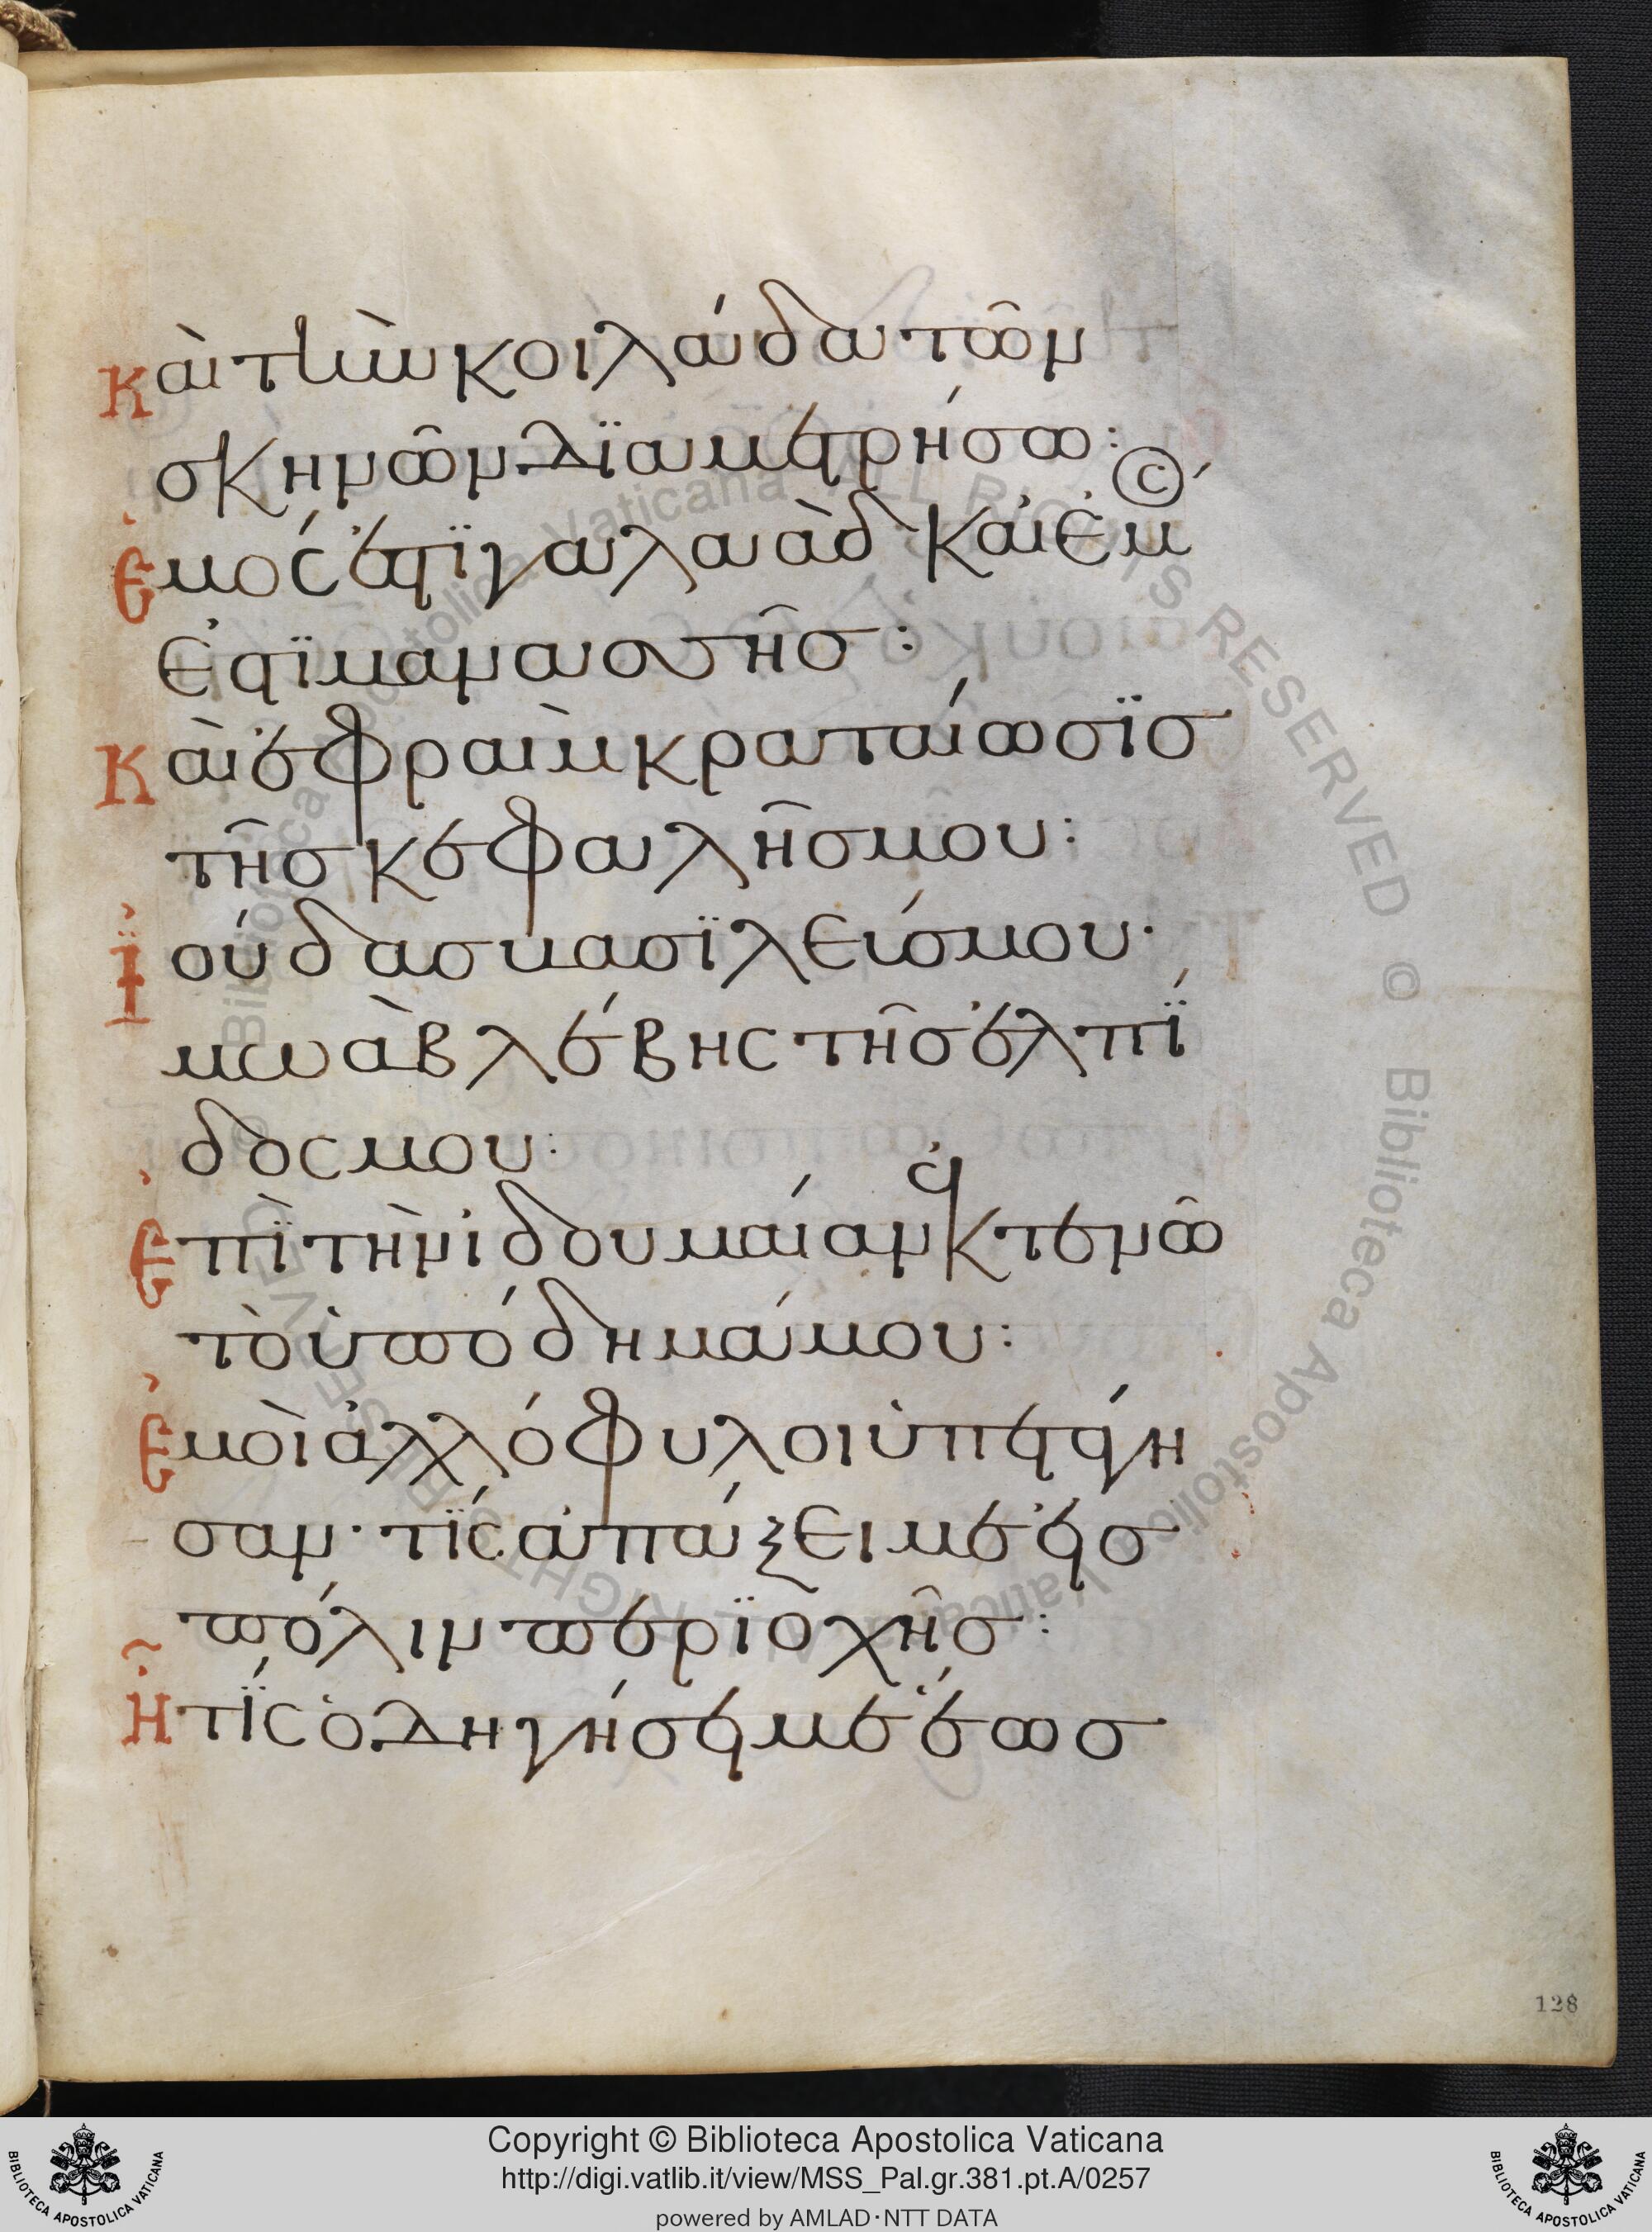 Καὶ τὴν κοιλάδα τῶν
σκηνῶν διαμετρήσω:
Ἐμός ἐστϊ γαλαὰδ· καὶ ἐμ
ἐστϊ μανασσῆσ:
Καὶ ἐφραὶμ κραταίωσϊσ
τῆσ κεφαλῆσ μου:
Ϊούδασ βασϊλεύσ μου·
μωὰβ λέβης τῆσ ἐλπΐ
δος μου:
Ἐπῒ τὴν ἰδουμαίαν ἐκτενῶ
τὸ ὑπόδημά μου:
Ἐμοὶ ἀλλόφυλοι ὑπετάγη
σαν· τΐς ἀπάξει με εἰσ
πόλιν περϊοχῆσ:
Ἢ τΐς ὁδηγήσει με ἕωσ
128
Copyright © Biblioteca Apostolica Vaticana
http://digi.vatlib.it/view/MSS_Pal.gr.381.pt.A/0257
powered by AMLAD·NTT DATA
BIBLIOTECA APOSTOLICA VATICANA
BIBLIOTECA APOSTOLICA VATICANA
© Biblioteca Apostolica Vaticana ALL RIGHTS RESERVED
© Biblioteca Apostolica Vaticana ALL RIGHTS RESERVED